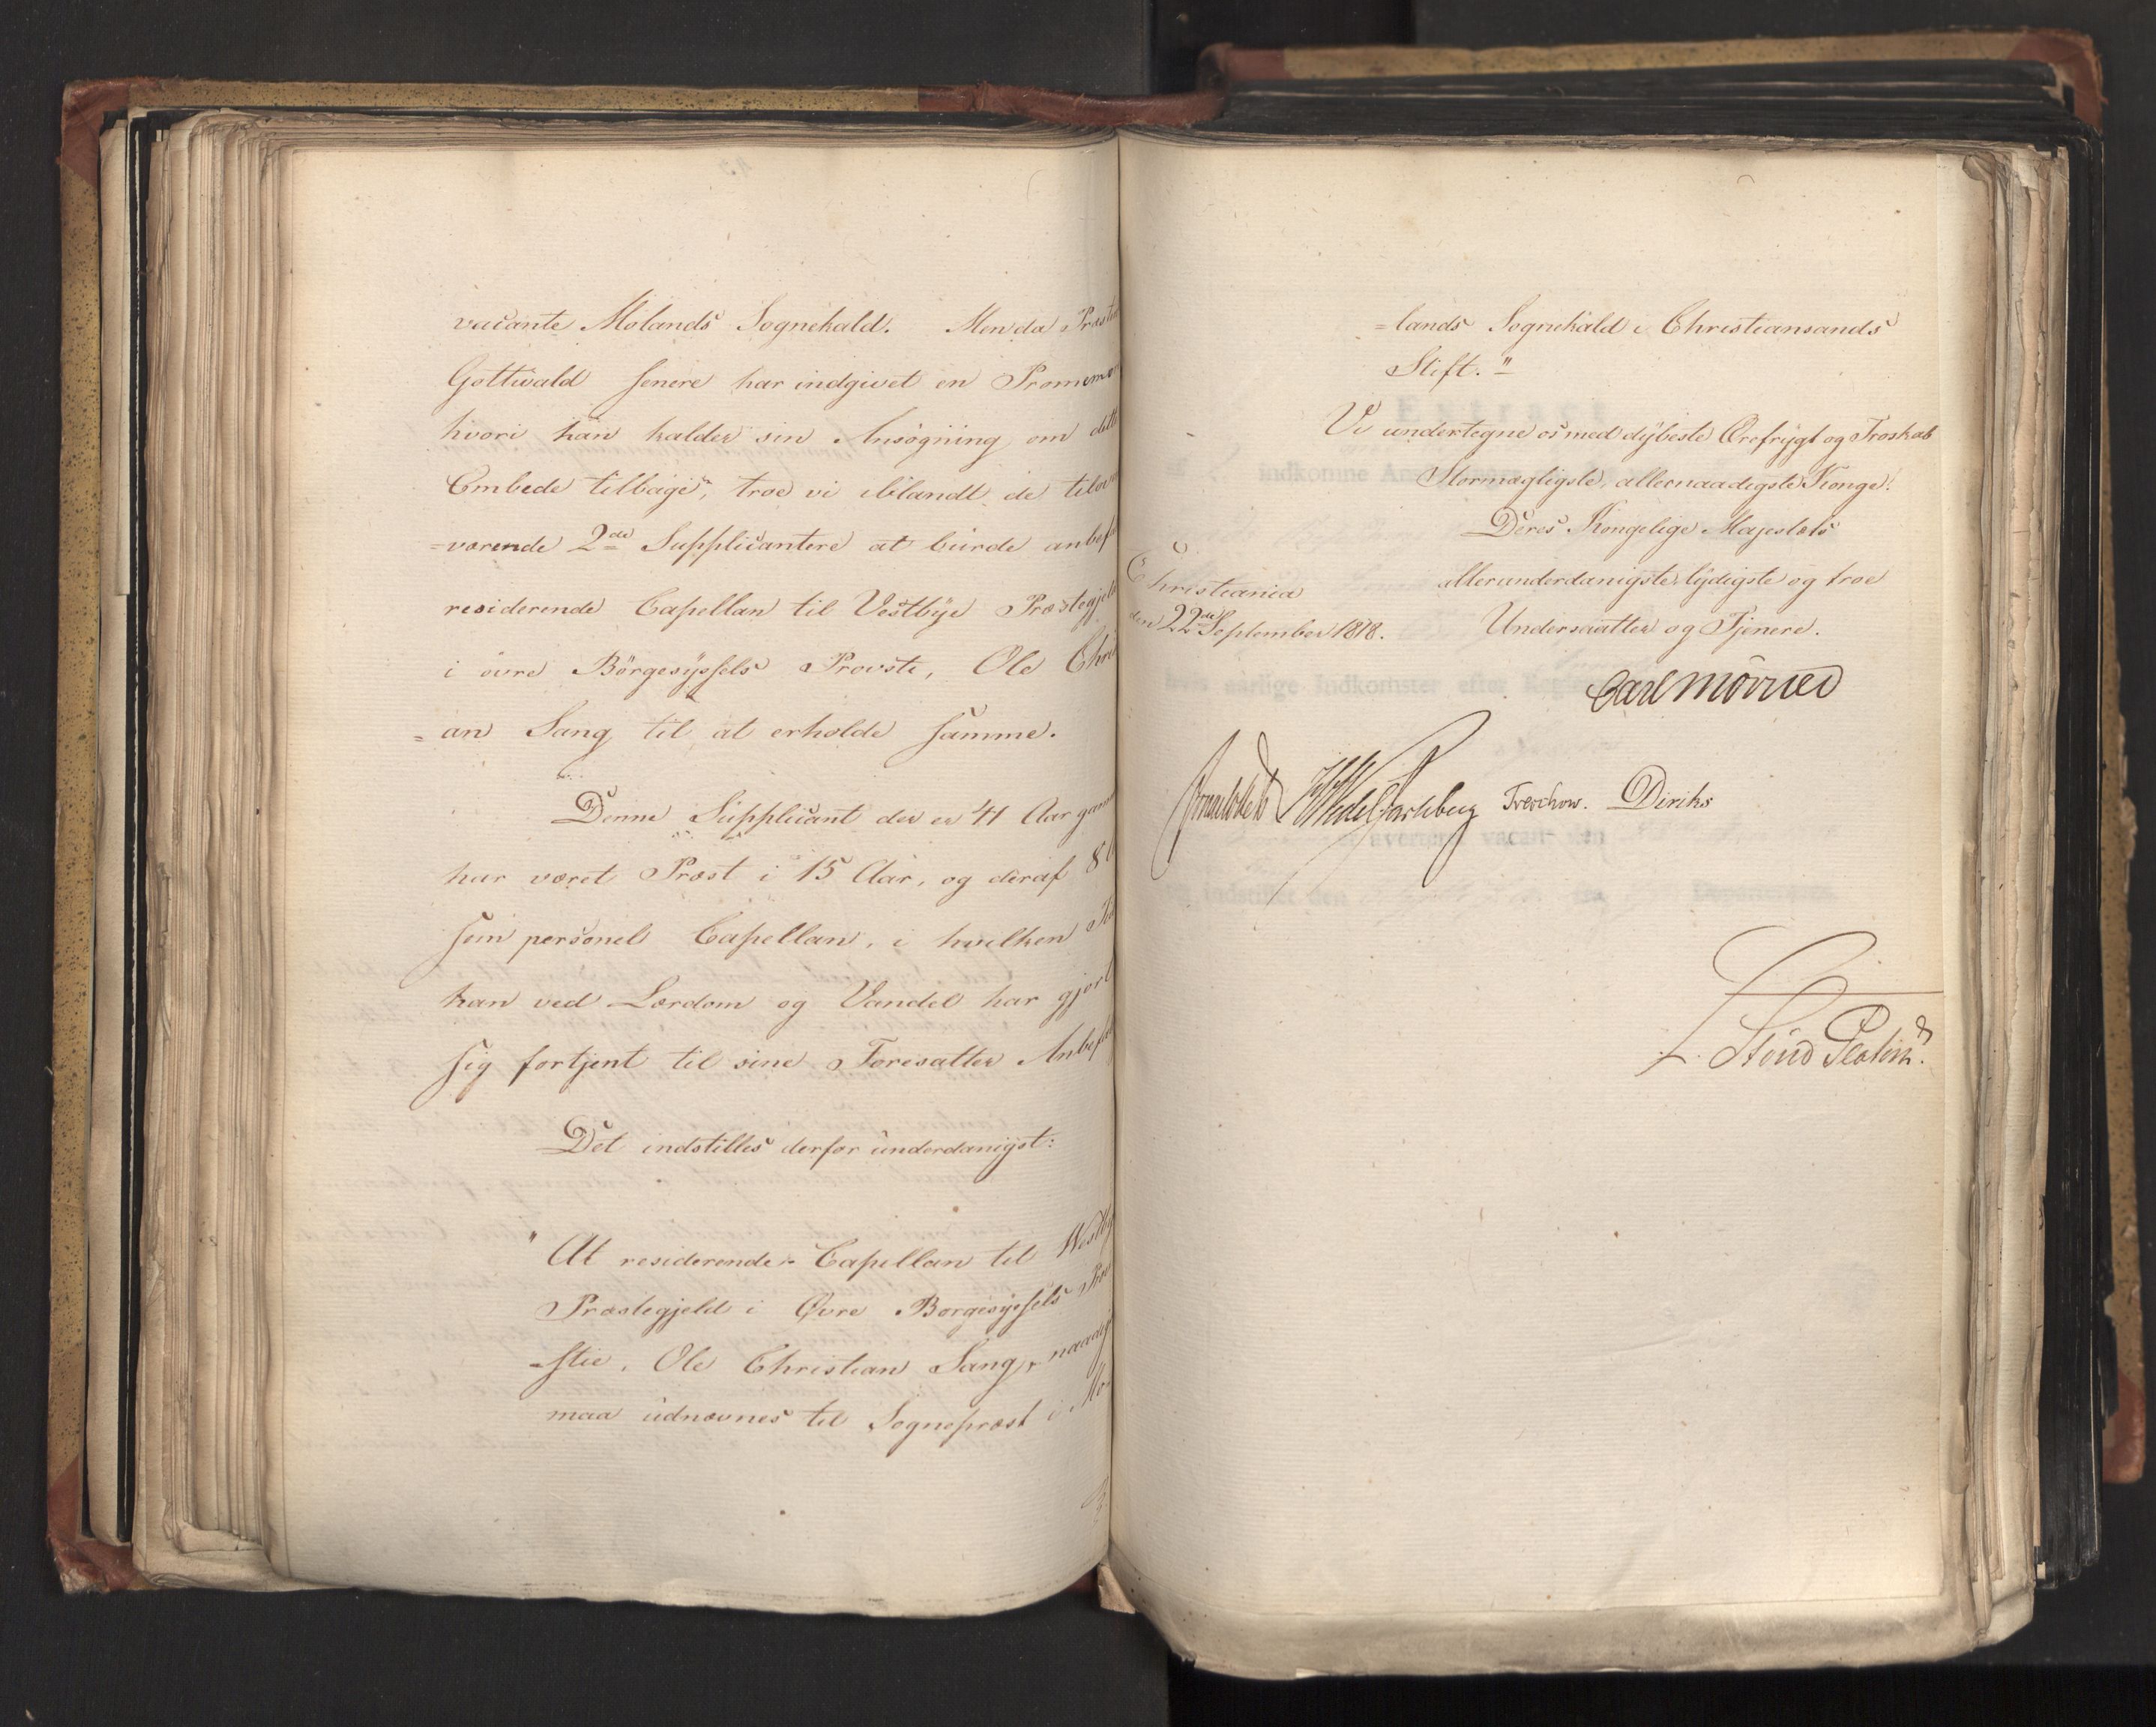 vacante Molands Sognekald. Men da Præsten
Gottwald senere har indgivet en Promemor
hvori han kalder sin Ansøgning om dette
Embede tilbage, troe vi iblandt de tilover
=værende 2de Supplicantere at burde anbef
residerende Capellan til Vestbye Præstegjeld
i övre Börgesyssels Provsti, Ole Chri
=an Sang til at erholde samme.
Denne Supplicant der er 41 Aar gam
har været Præst i 15 Aar, og deraf 8
som personel Capellan, i hvilken
han ved Lærdom og Vandel har gjort
sig fortjent til sine Foresatter Anbefa
Det indstilles derfor underdanigst:
"At residerende Capellan til Westby
Præstegjeld i Øvre Borgesyssels Pro
=stie, Ole Christian Sang, naadig
maa udnævnes til Sognepræst i Mo-
=lands Sognekald i Christiansands
Stift."
Vi undertegne os med dybeste Ærefrygt og Troskab
Stormægtigste, allernaadigste Konge!
Deres Kongelige Majestæts
Christiania allerunderdanigste lydigste og troe
den 22de September 1818. Undersaatter og Tjenere.
Carl Mörner
WedelJarlsberg Treschow. Diriks
Stoud Platou